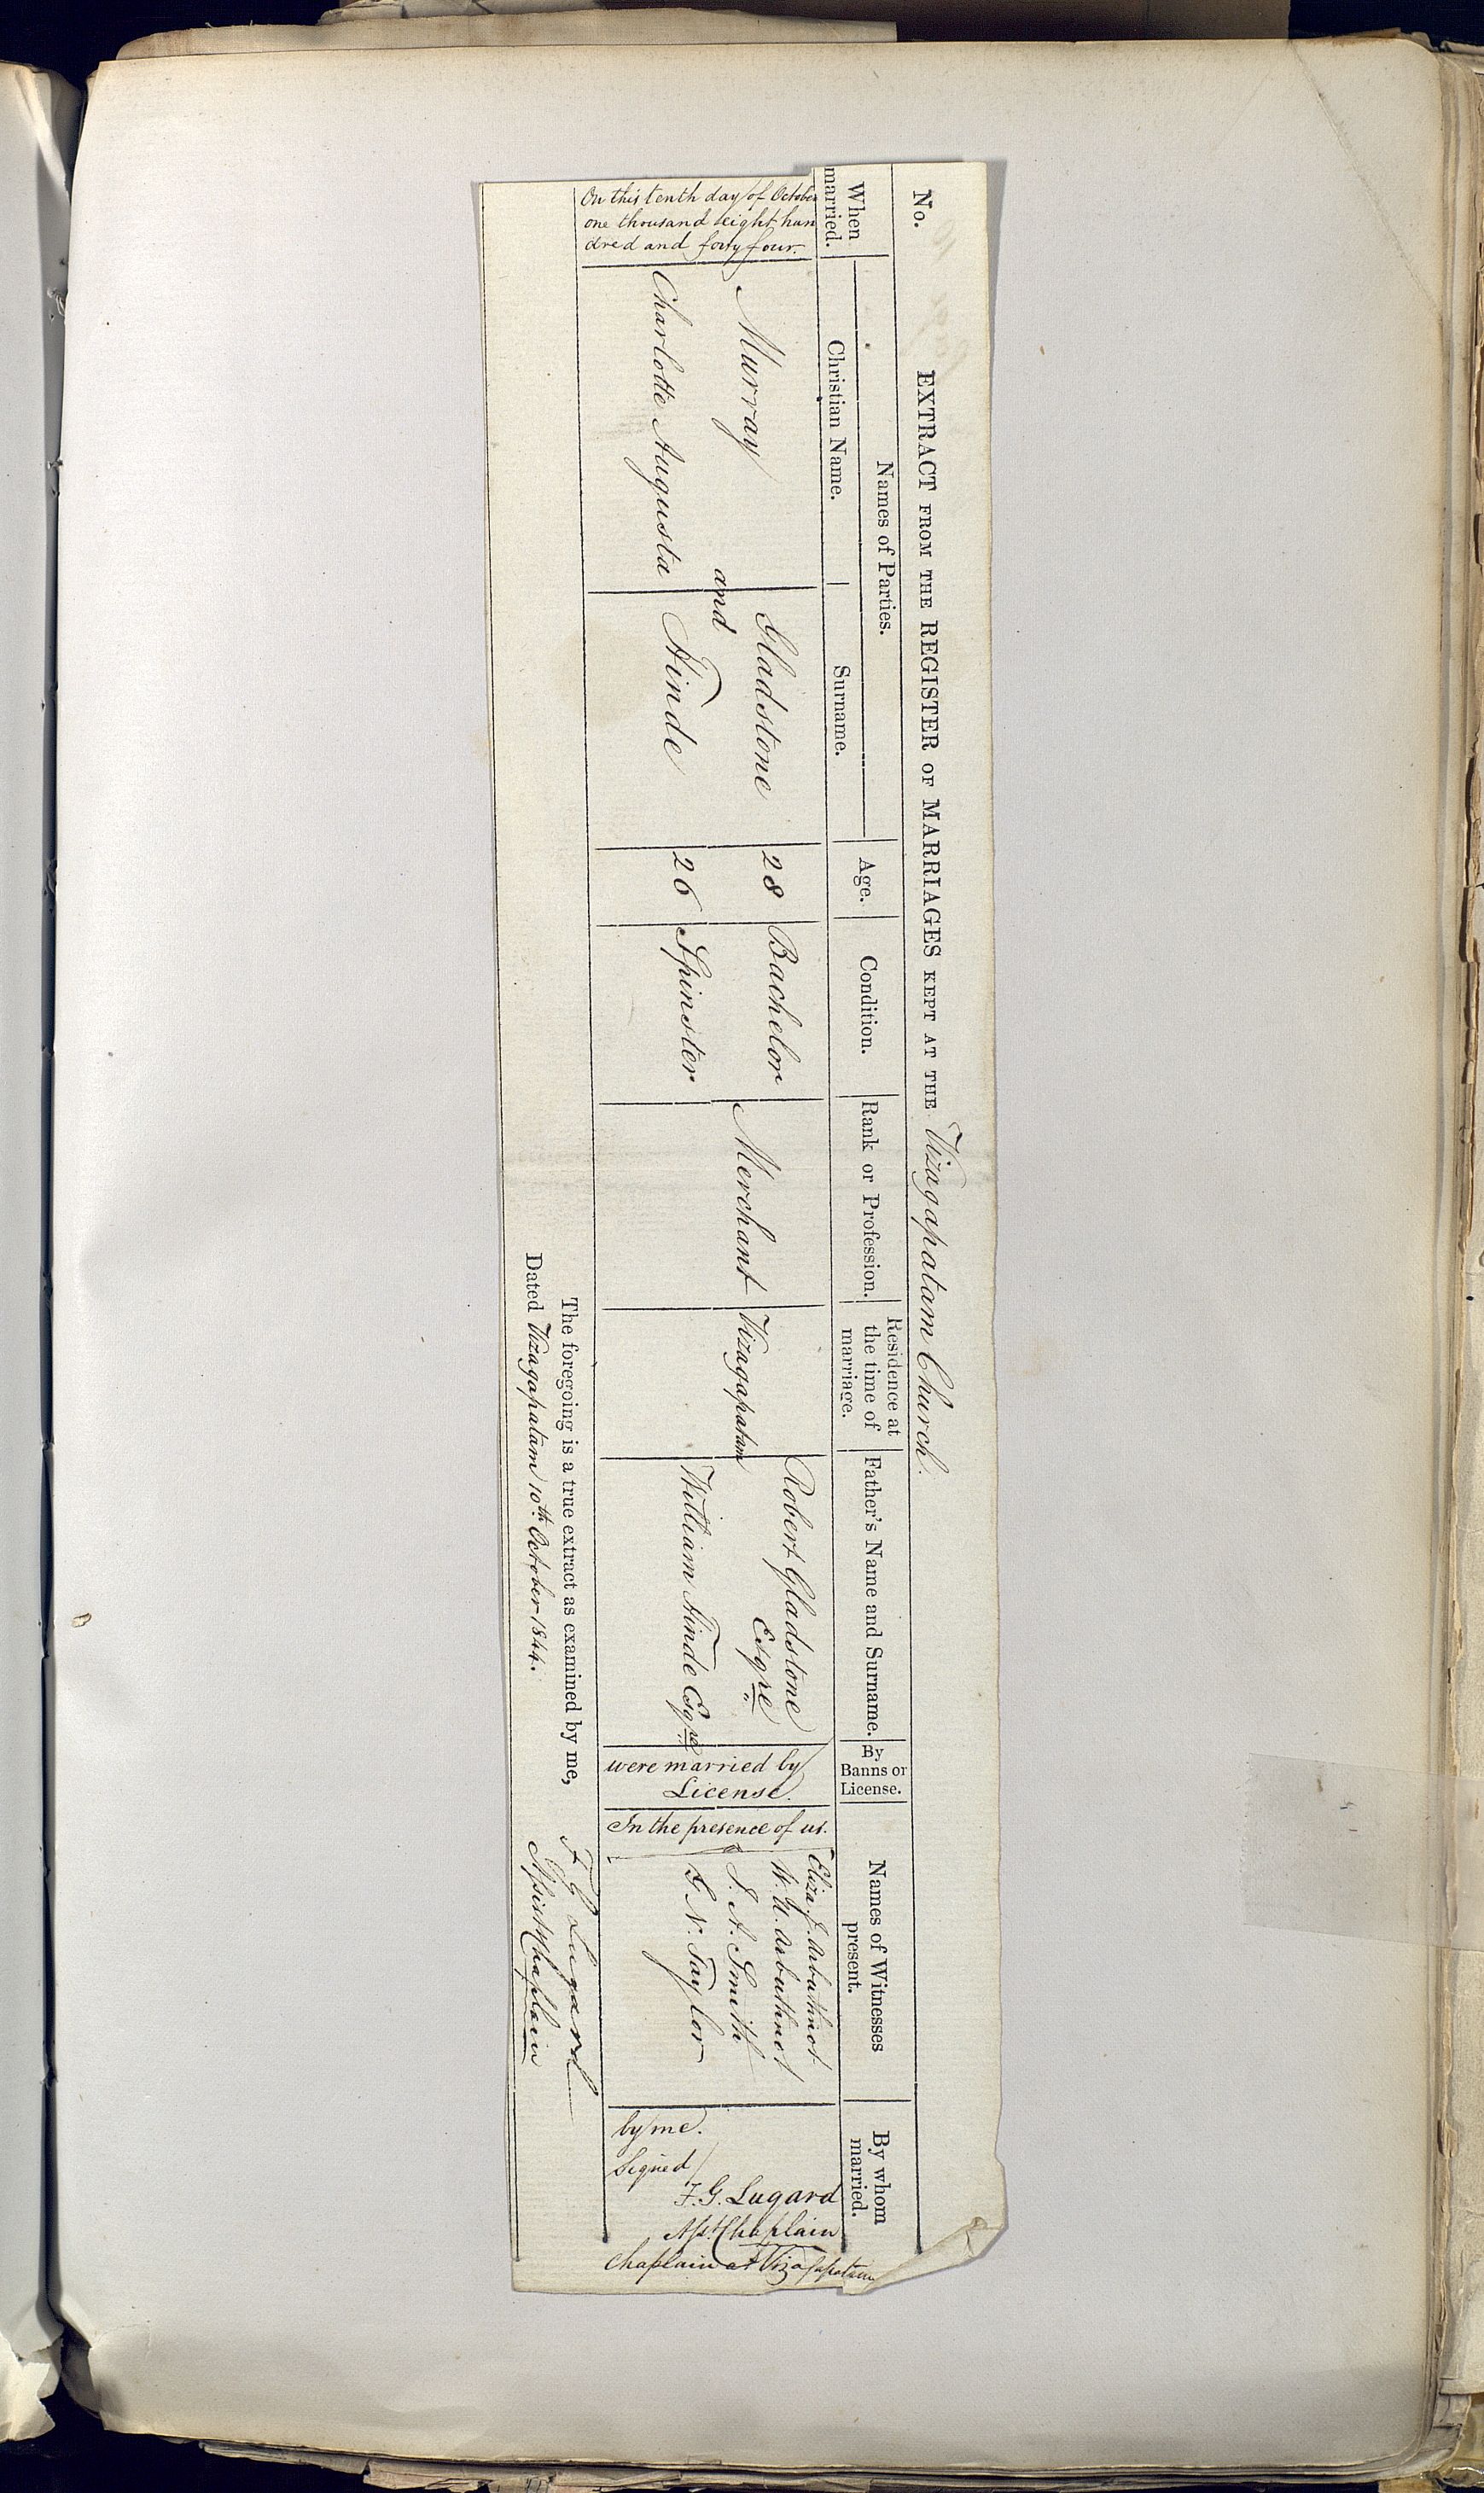 No.
EXTRACT FROM THE REGISTER OF MARRIAGES KEPT AT THE Vizagapatam Church.
When
married.
Names of Parties.
Christian Name.
Surname.
Age.
Condition.
Rank or Profession.
Residence at
the time of
marriage.
Father's Name and Surname.
By
Banns or
License.
Names of Witnesses
present.
By whom
married.
On this tenth day of October
one thousand eight hun
dred and forty four.
Murray
and
Charlotte Augusta
Gladstone
Hinde
28
26
Bachelor
Spinster
Merchant
Vizagapatam
Robert Gladstone
Esqre
William Hinde Esqre
were married by
License.
In the presence of us.
Eliza J. Arbuthnot
W. U. Arbuthnot
J. A. Smith
G. N. Taylor
by me.
Signed
F. G. Lugard
Asst Chaplain
Chaplain at Vizagapatam
The foregoing is a true extract as examined by me,
Dated Vizagapatam 10th October 1844.
F G Lugard
Assist Chaplain